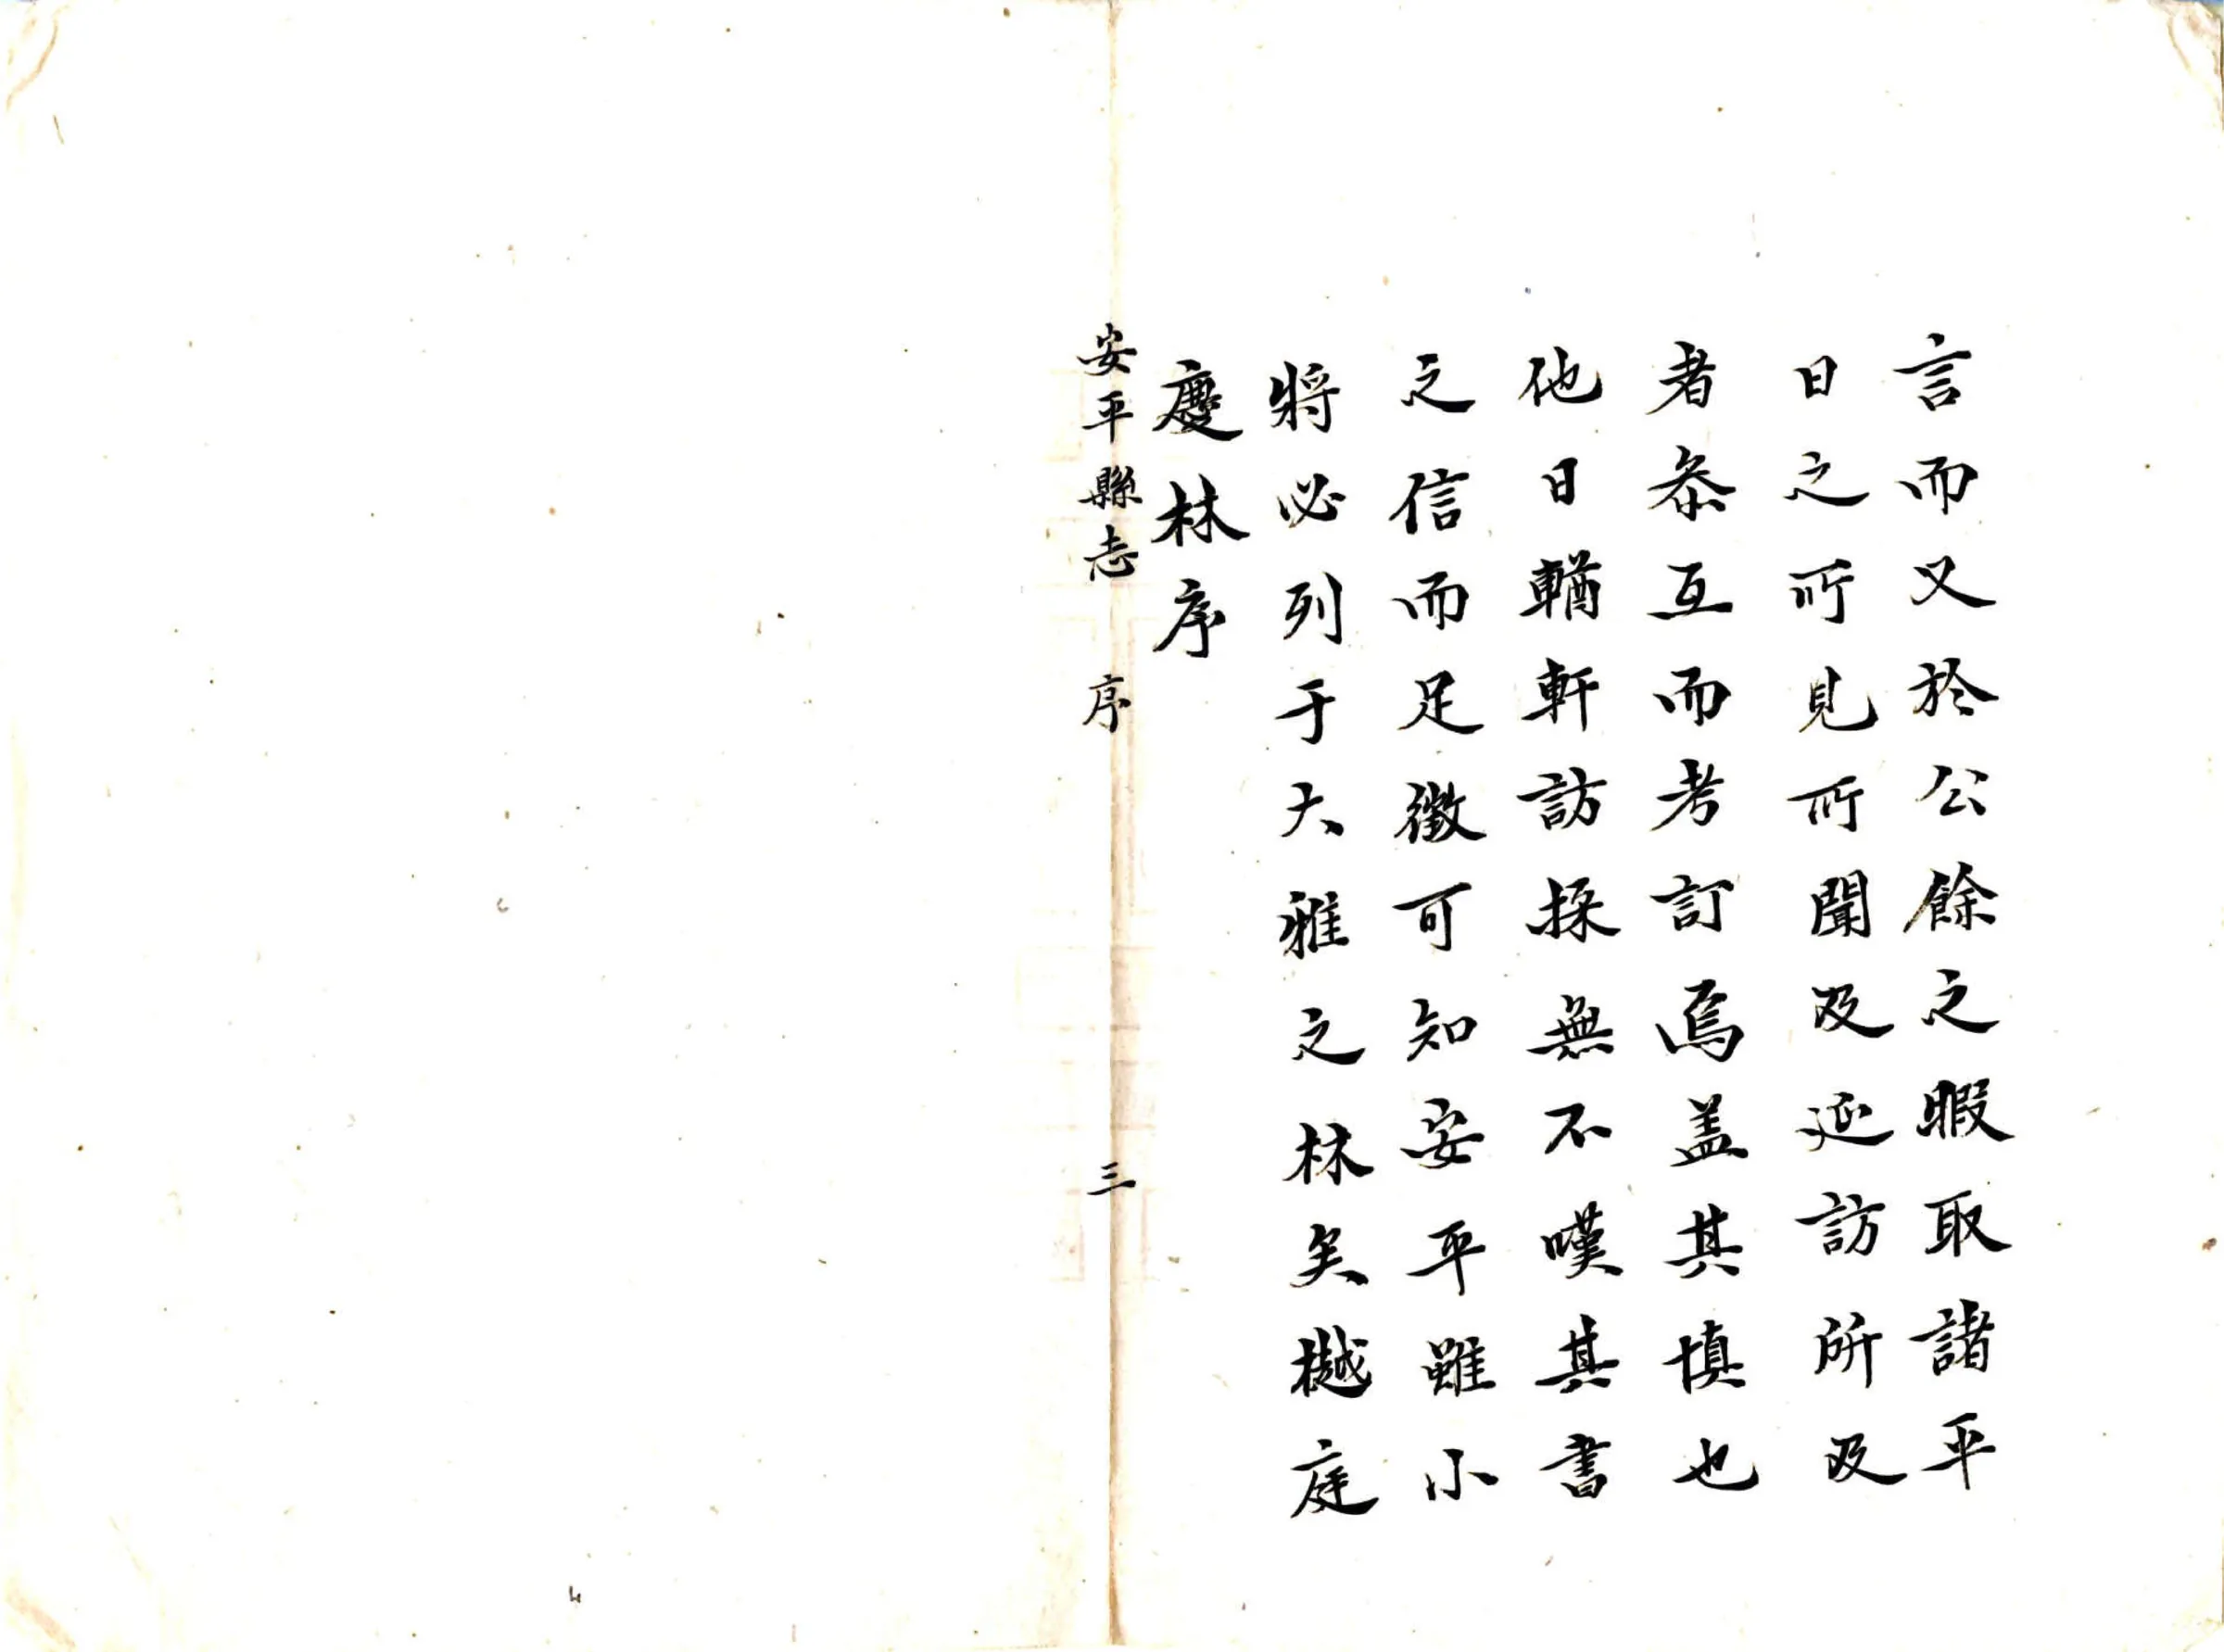 言而又於公餘之暇取諸平
日之所見所聞及延訪所及
者叅互而考訂焉盖其慎也
他日輶軒訪採無不嘆其書
之信而足徵可知安平雖小
將必列于大雅之林矣樾庭
慶林序
安平縣志 序 三